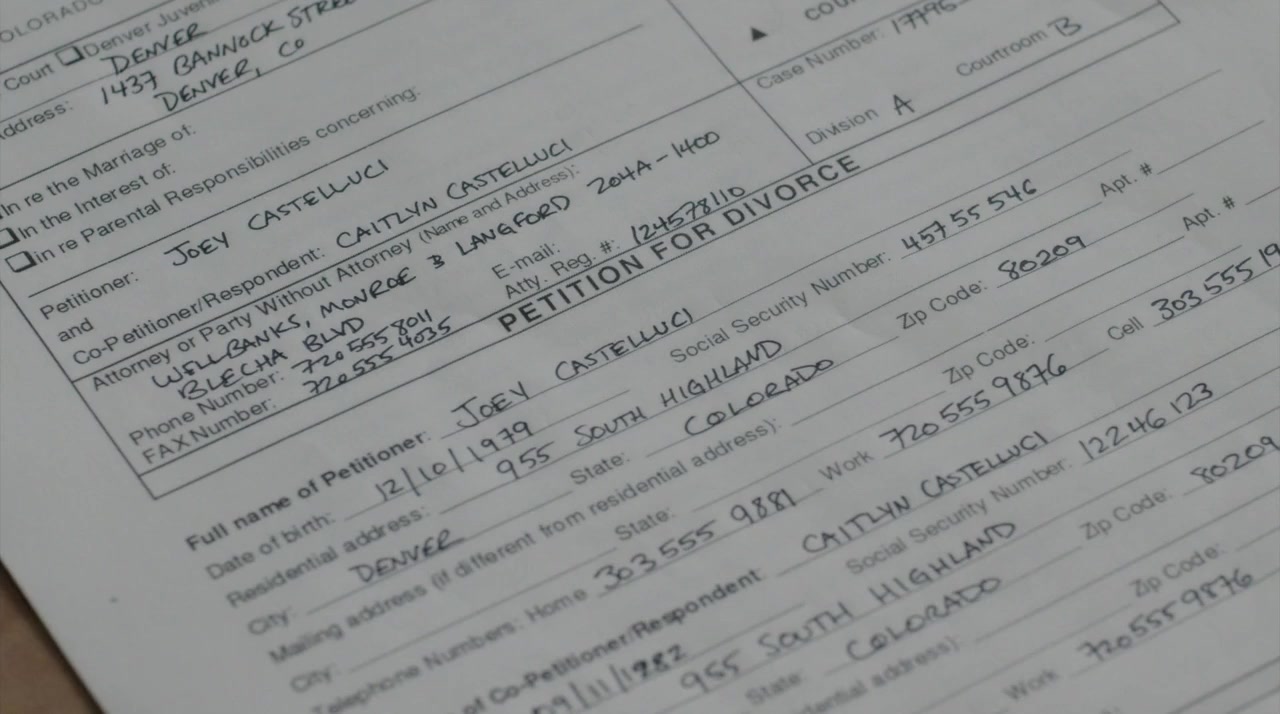 COLORADO
Court Denver Juvenile
DENVER
Address: 1437 BANNOCK STREET
DENVER, CO
In re the Marriage of:
In the Interest of:
In re Parental Responsibilities concerning:
Petitioner: JOEY CASTELLUCI
and
Co-Petitioner/Respondent: CAITLYN CASTELLUCI
Attorney or Party Without Attorney (Name and Address):
WELLBANKS, MONROE & LANGFORD 204A-1400
BLECHA BLVD
Phone Number: 720 555 8011 E-mail:
FAX Number: 720 555 4035 Atty. Reg. #: 124578110
▲ COU
Case Number: 17796
Division A Courtroom B
PETITION FOR DIVORCE
Full name of Petitioner: JOEY CASTELLUCI
Date of birth: 12/10/1979 Social Security Number: 457 55 546
Residential address: 955 SOUTH HIGHLAND Apt. #
City: DENVER State: COLORADO Zip Code: 80209
Mailing address (if different from residential address): Apt. #
City: State: Zip Code:
Telephone Numbers: Home 303 555 9881 Work 720 555 9876 Cell 303 555 19
of Co-Petitioner/Respondent: CAITLYN CASTELLUCI
09/11/1982 Social Security Number: 122 46 123
955 SOUTH HIGHLAND
State: COLORADO Zip Code: 80209
address):
Zip Code:
Work 720 555 9876